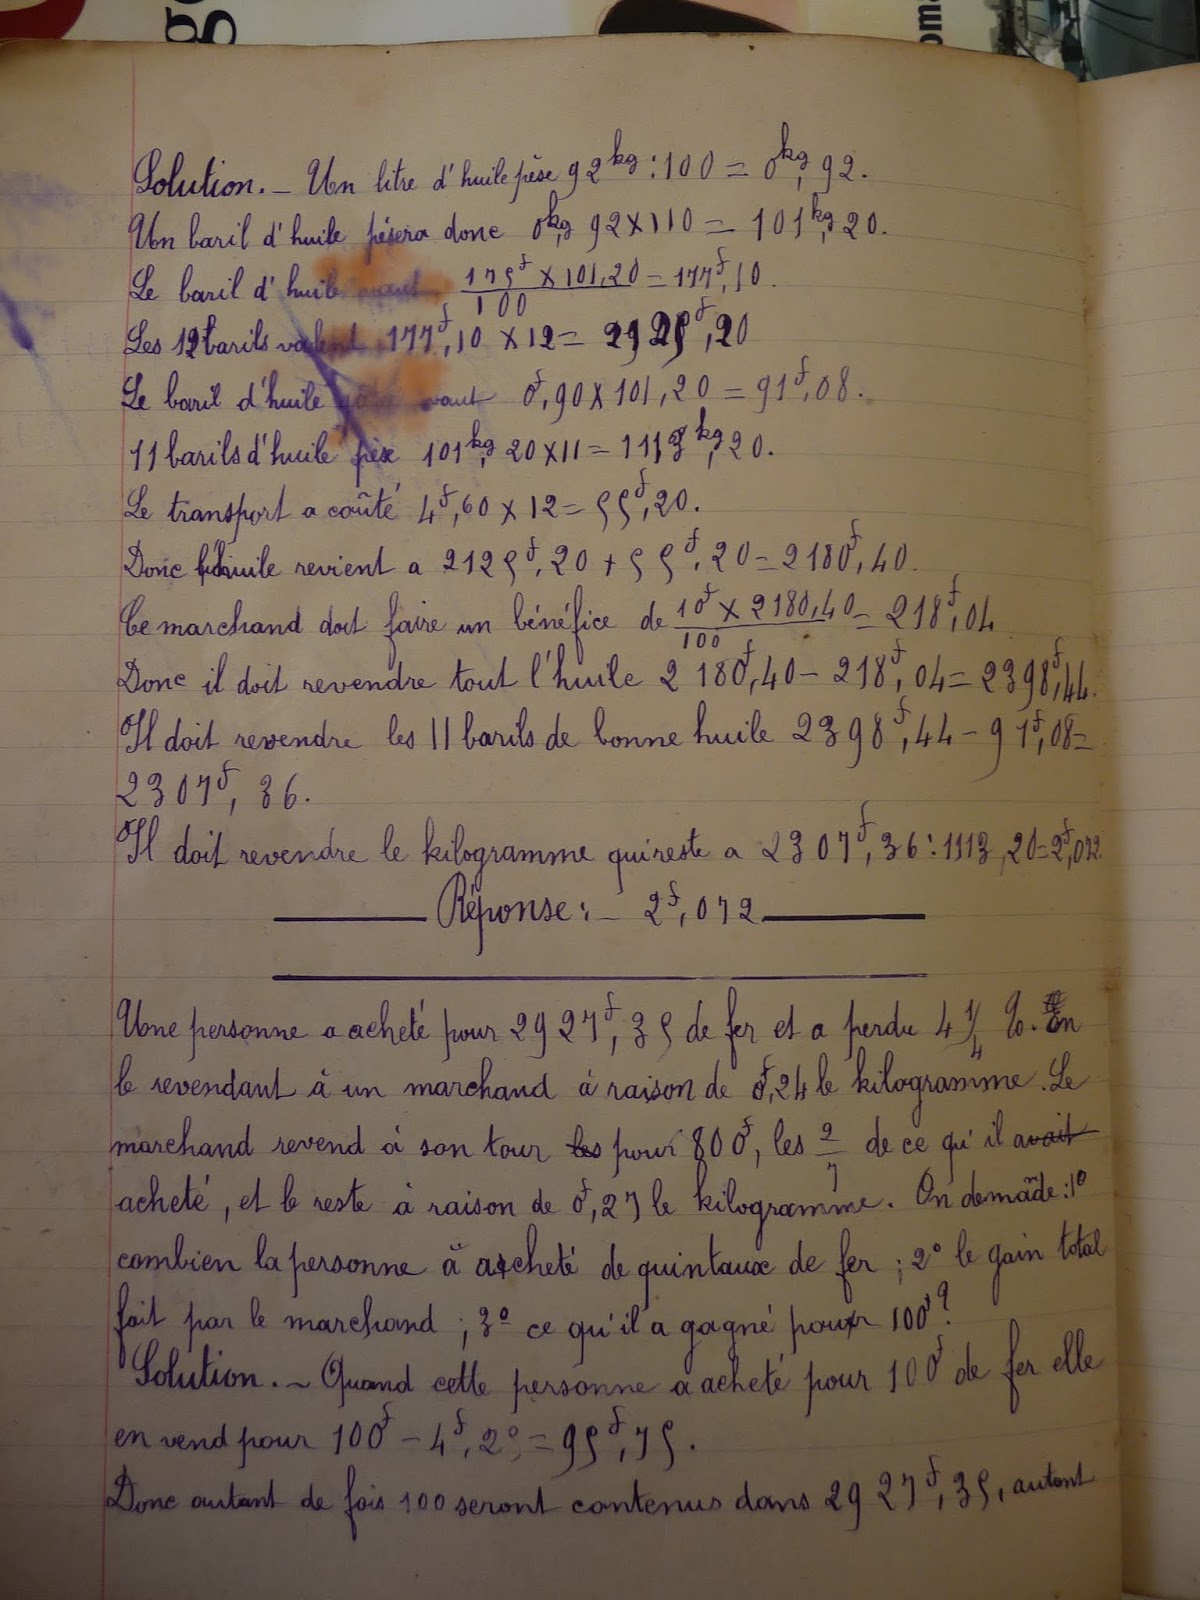 ge
oma
Solution. – Un litre d'huile pèse 92kg : 100 = 0kg, 92.
Un baril d'huile pésera donc 0kg, 92 x 110 = 101kg, 20.
Le baril d'huile vaut 175f x 101,20 / 100 = 177f, 10.
Les 12 barils valent 177f, 10 x 12 = 2125f, 20
Le baril d'huile vaut 0f, 90 x 101, 20 = 91f, 08.
11 barils d'huile pèse 101kg, 20 x 11 = 1113kg, 20.
Le transport a coûté 4f, 60 x 12 = 55f, 20.
Donc l'huile revient a 2125f, 20 + 55f, 20 = 2180f, 40.
Ce marchand doit faire un bénéfice de 10f x 2180,40 / 100 = 218f, 04
Donc il doit revendre tout l'huile 2180f, 40 – 218f, 04 = 2398f, 44.
Il doit revendre les 11 barils de bonne huile 2398f, 44 – 91f, 08 =
2307f, 36.
Il doit revendre le kilogramme qui reste a 2307f, 36 : 1113,20 = 2f, 072.
Réponse : – 2f, 072
Une personne a acheté pour 2927f, 35 de fer et a perdu 4 1/4 %. En
le revendant à un marchand à raison de 0f, 24 le kilogramme. Le
marchand revend à son tour les pour 800f, les 2/7 de ce qu'il avait
acheté, et le reste à raison de 0f, 27 le kilogramme. On demãde : 1º
combien la personne à acheté de quintaux de fer ; 2º le gain total
fait par le marchand ; 3º ce qu'il a gagné pour 100f ?
Solution. – Quand cette personne a acheté pour 100f de fer elle
en vend pour 100f – 4f, 2 = 95f, 75.
Donc autant de fois 100 seront contenus dans 2927f, 35, autant